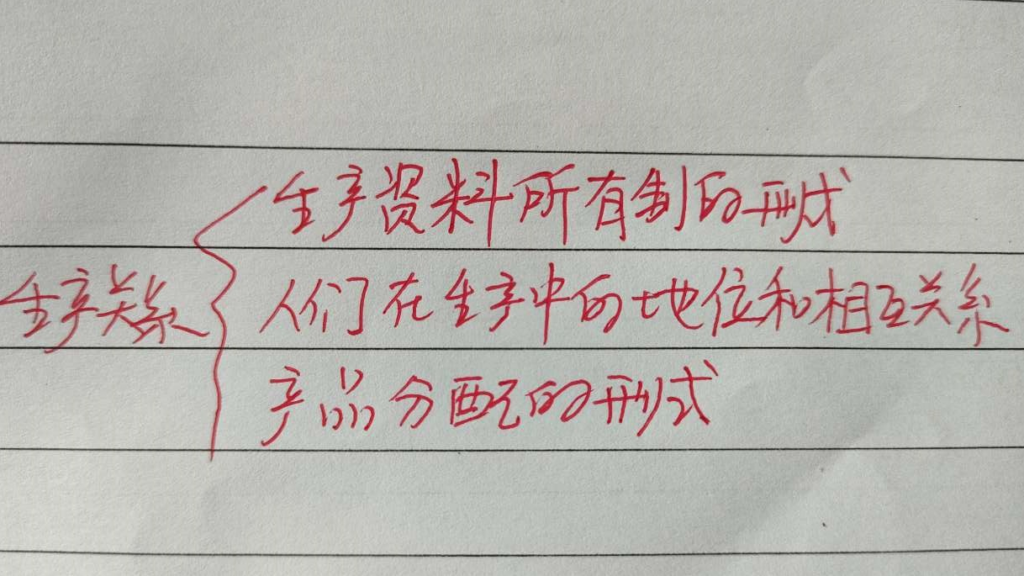 生产资料所有制的形式
生产关系
人们在生产中的地位和相互关系
产品分配的形式